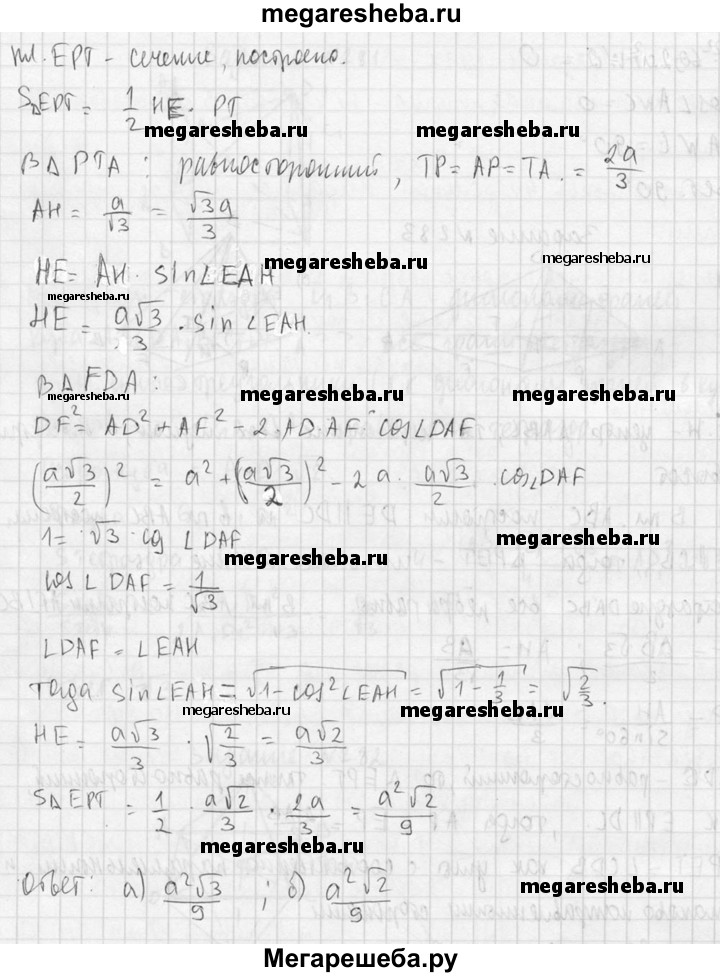 megaresheba.ru
пл. EPT - сечение, построено.
S△EPT = 1/2 HE · PT
megaresheba.ru megaresheba.ru
В △ PTA : равносторонний, TP = AP = TA. = 2a/3
AH = a/√3 = √3a/3
megaresheba.ru
HE = AH · sin∠EAH
megaresheba.ru
megaresheba.ru
HE = a√3/3 · sin∠EAH.
megaresheba.ru
В △ FDA :
megaresheba.ru
megaresheba.ru
DF² = AD² + AF² - 2 · AD · AF · cos∠DAF
(a√3/2)² = a² + (a√3/2)² - 2a · a√3/2 · cos∠DAF
1 = √3 · cos ∠DAF
megaresheba.ru
megaresheba.ru
cos ∠ DAF = 1/√3
∠DAF = ∠EAH
Тогда sin∠EAH = √1 - cos²∠EAH = √1 - 1/3 = √2/3.
megaresheba.ru megaresheba.ru
HE = a√3/3 · √2/3 = a√2/3
S△EPT = 1/2 · a√2/3 · 2a/3 = a²√2/9
megaresheba.ru
Ответ: а) a²√3/9 ; б) a²√2/9
megaresheba.ru
Мегарешеба.ру